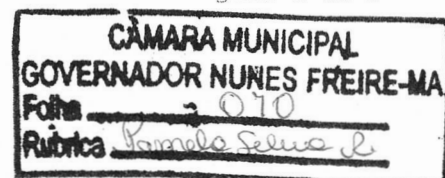 CÂMARA MUNICIPAL
GOVERNADOR NUNES FREIRE-MA
Folha 010
Rubrica Pamela Silva R